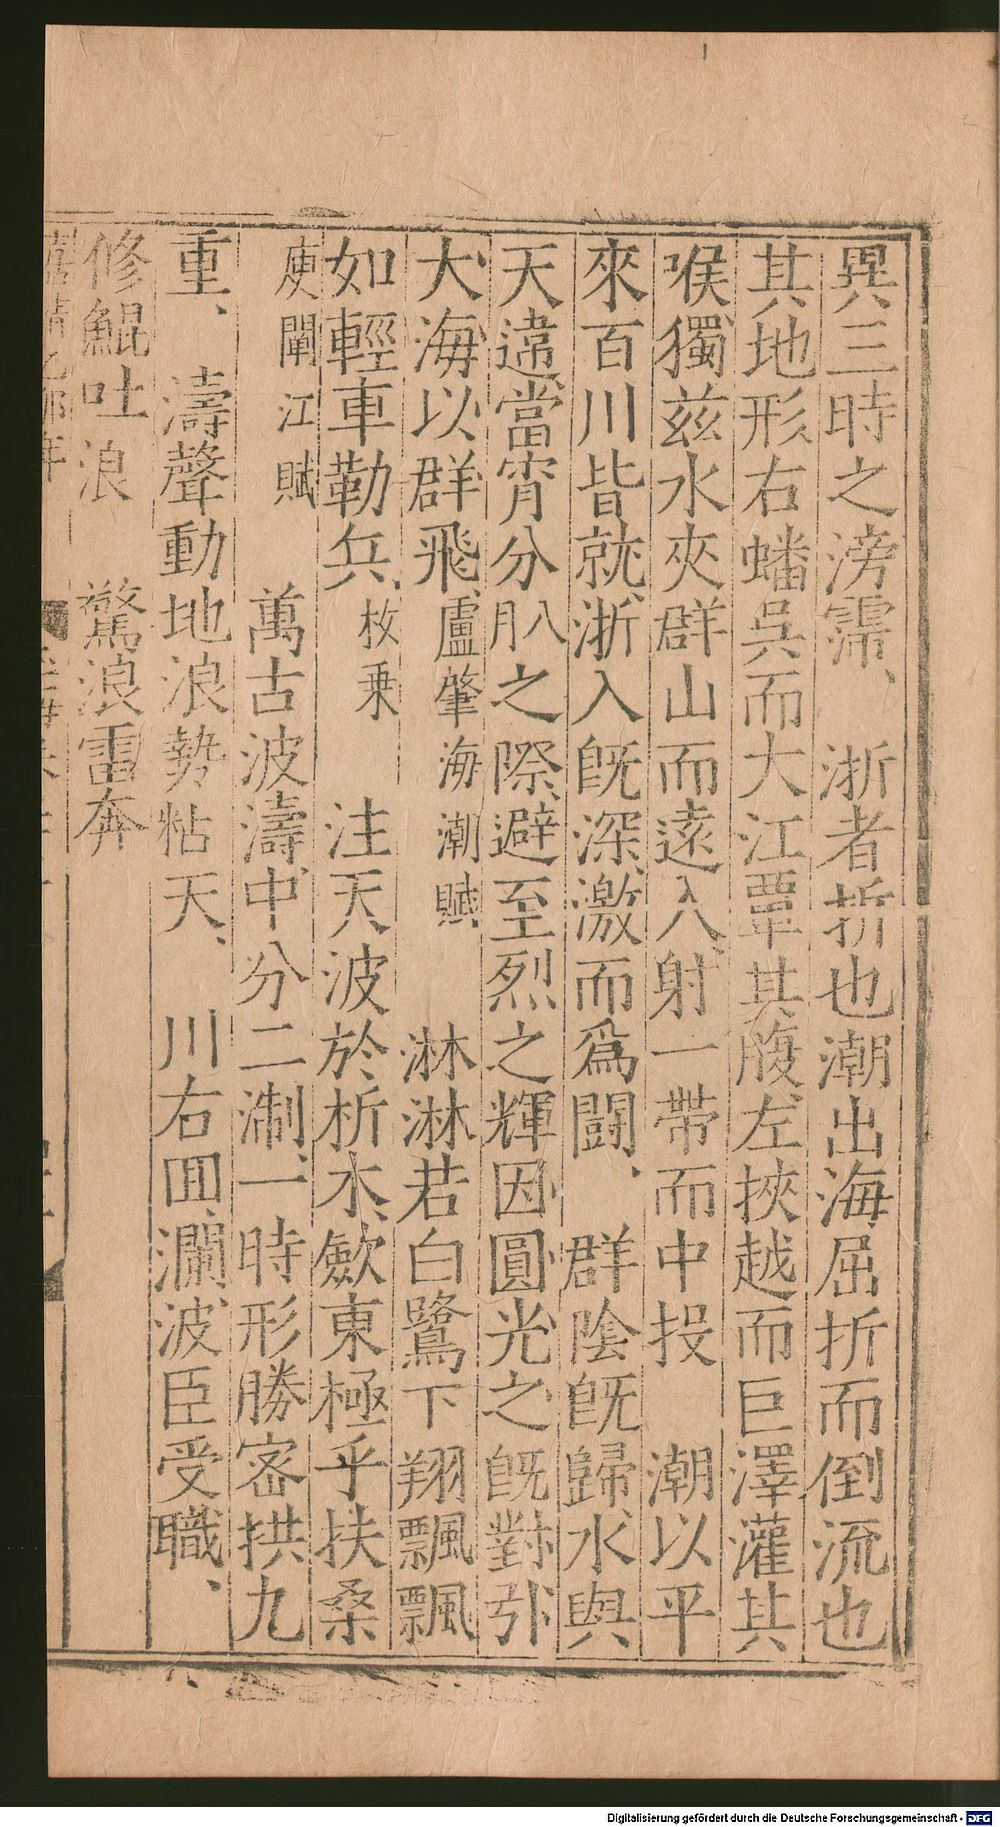 異三時之滂霈、　浙者折也潮出海屈折而倒流也
其地形右蟠吳而大江覃其腹左挾越而巨澤灌其
喉獨兹水夾群山而遠入射一帶而中投　潮以平
來百川皆就浙入既深激而爲闘、群陰既歸水與
天違當宵分月八之際避至烈之輝因圓光之既對引
大海以群飛盧肇海潮賦　淋淋若白鷺下翔飄飄
如輕車勒兵、枚乗　注天波於析木歕東極乎扶桑
庾闡江賦　萬古波濤中分二淛一時形勝密拱九
重、濤聲動地浪勢粘天、川右回瀾波臣受職、
修鯤吐浪　驚浪雷奔
Digitalisierung gefördert durch die Deutsche Forschungsgemeinschaft - DFG